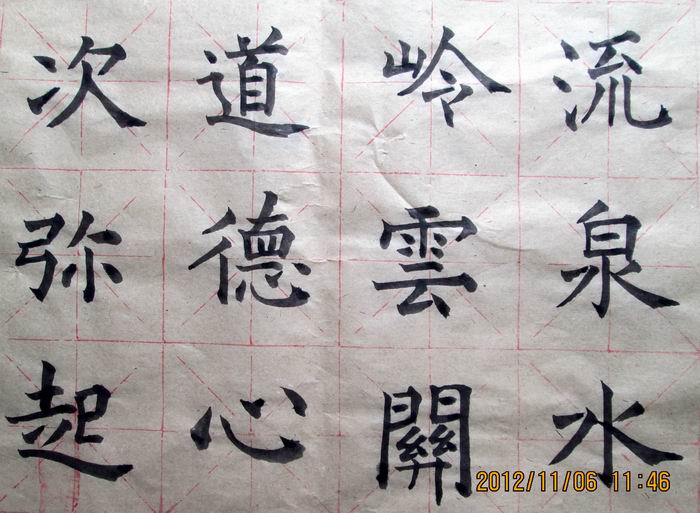 流泉水
岭雲關
道德心
次弥起
2012/11/06 11:46